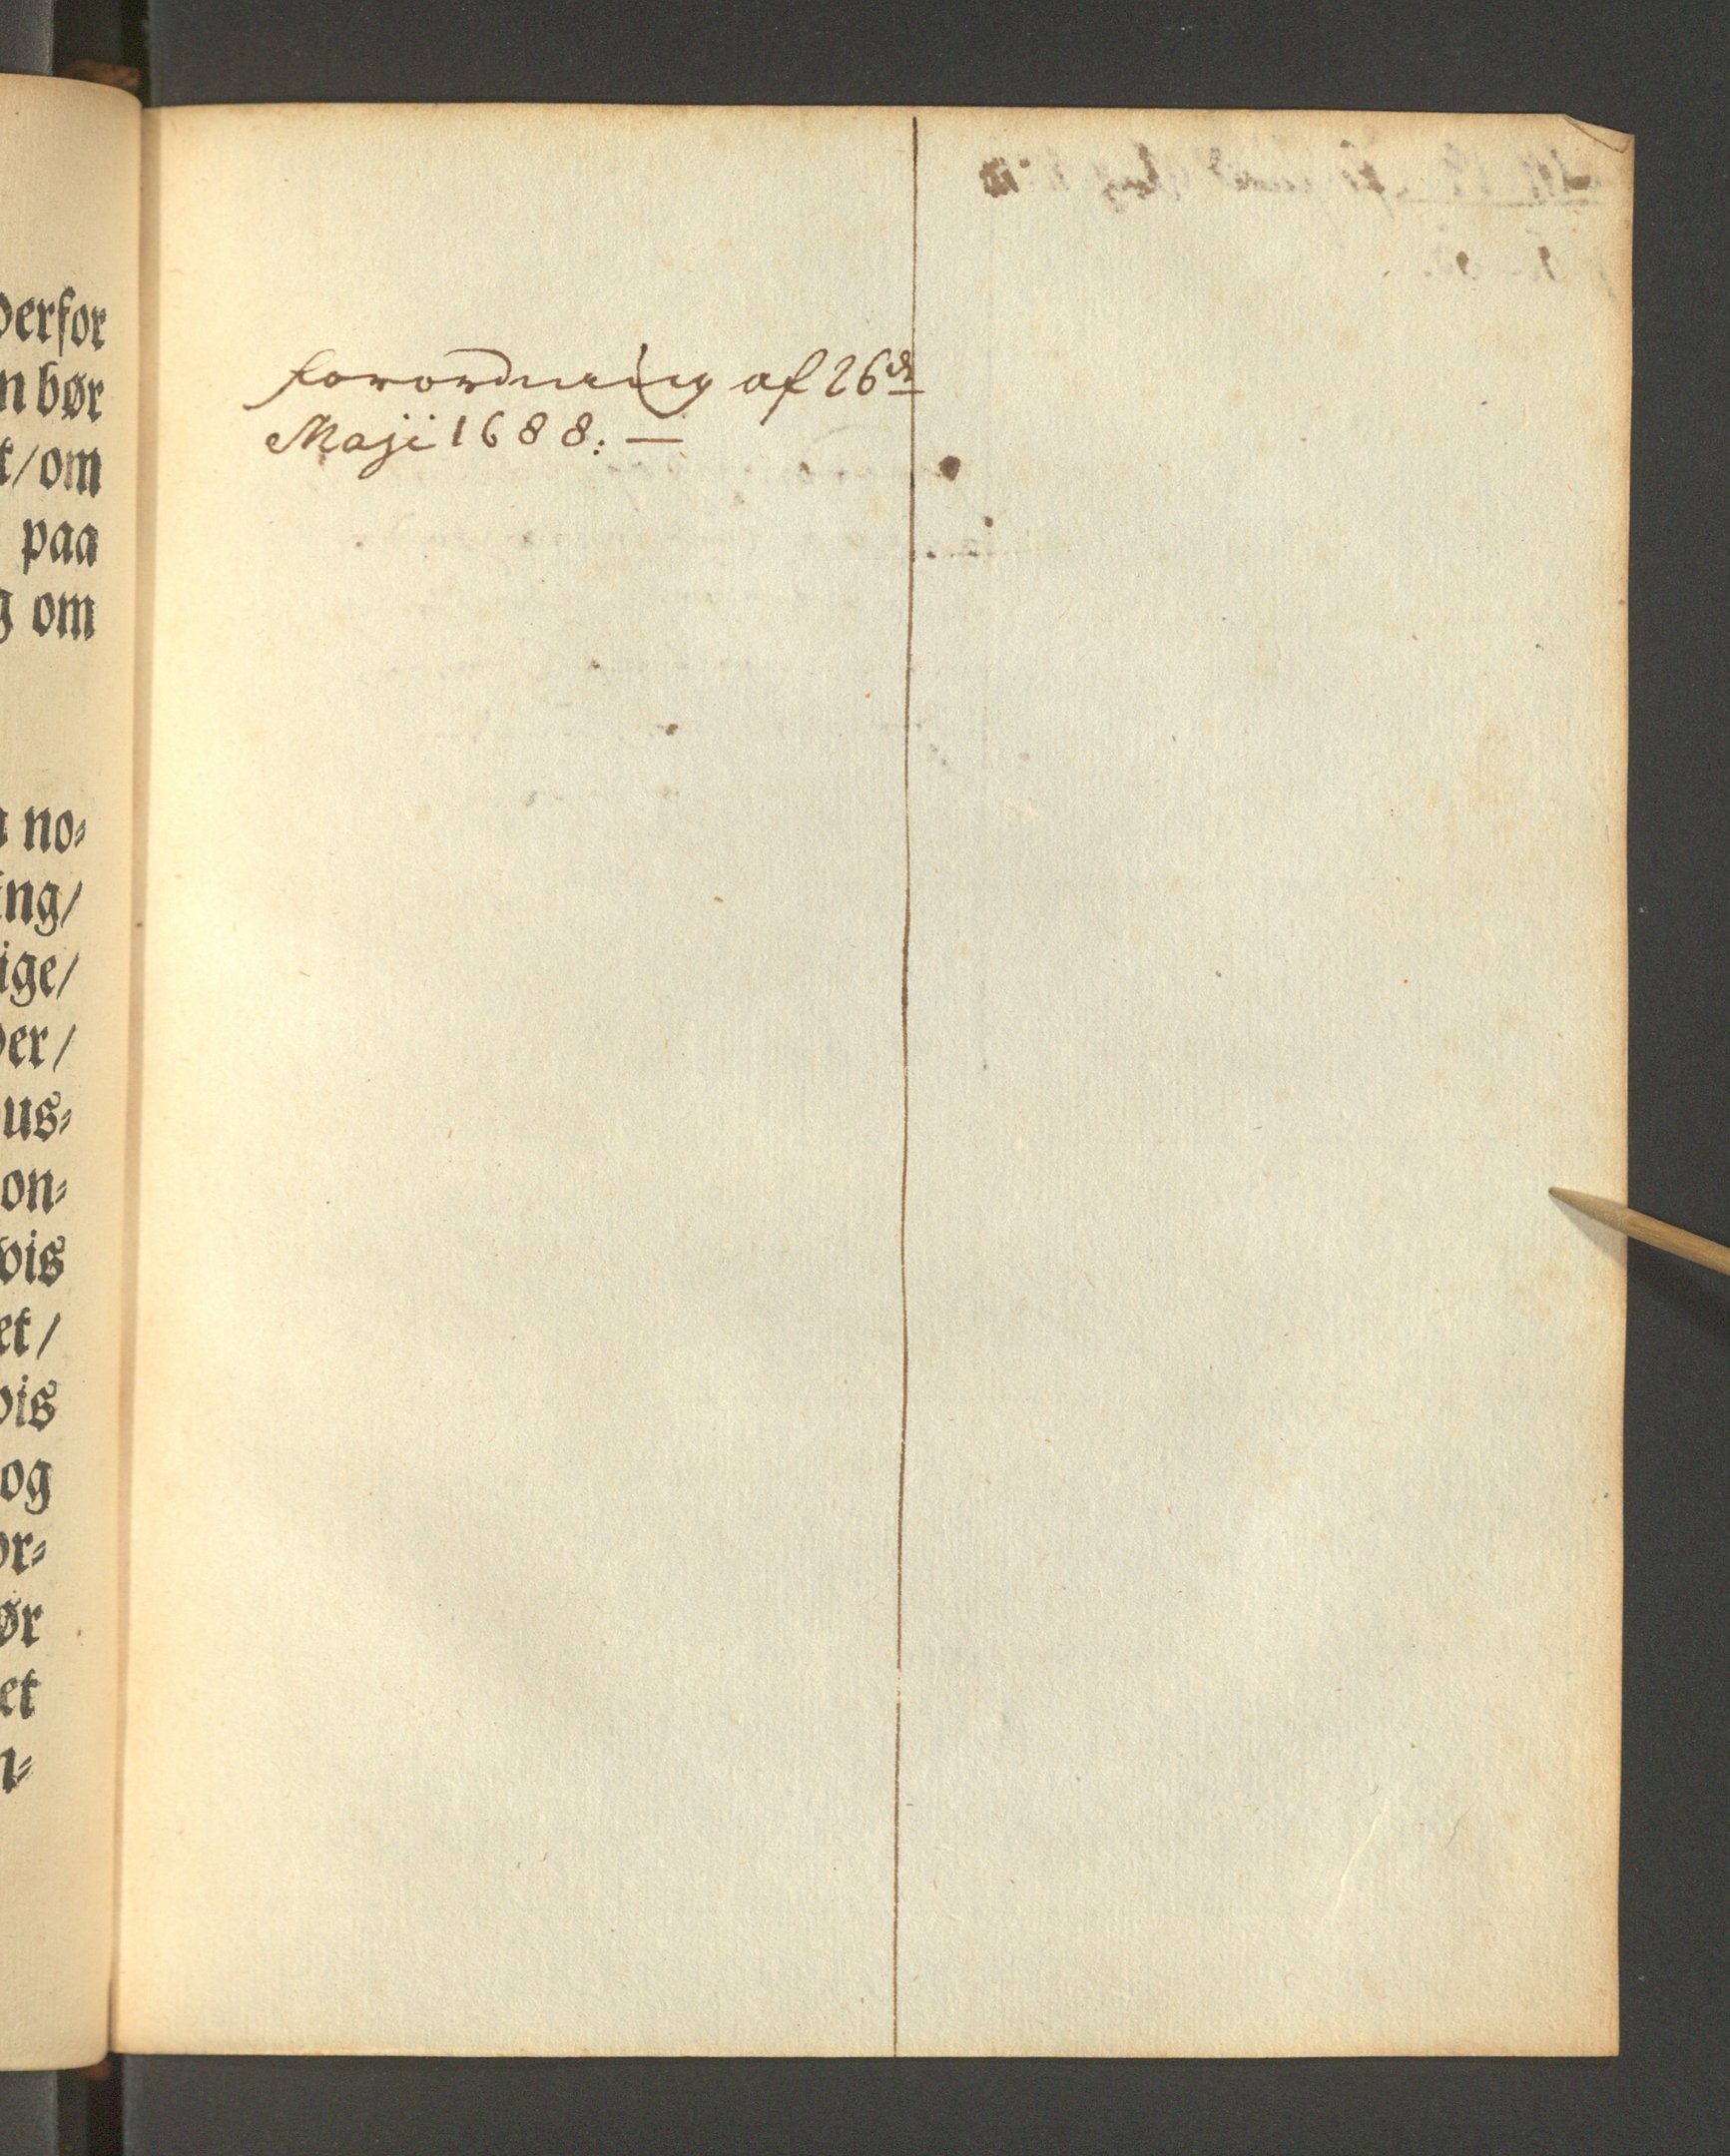 erfor
n bør
t/om
paa
g om
no⸗
ing/
ige/
er/
us⸗
on⸗
vis
et/
vis
og
or⸗
ør
et
n⸗
forordning af 26de
Maji 1688. —